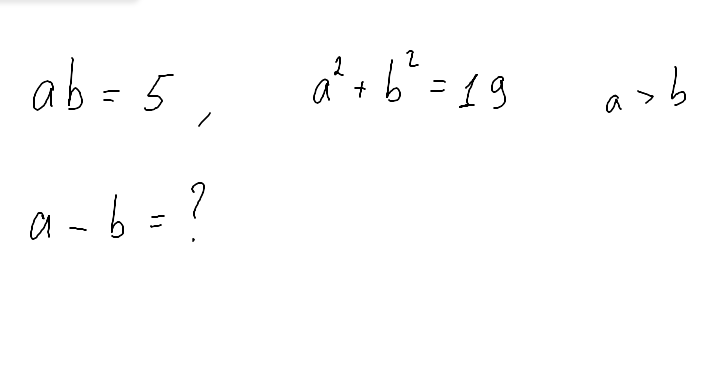 ab = 5, a² + b² = 19 a > b
a - b = ?